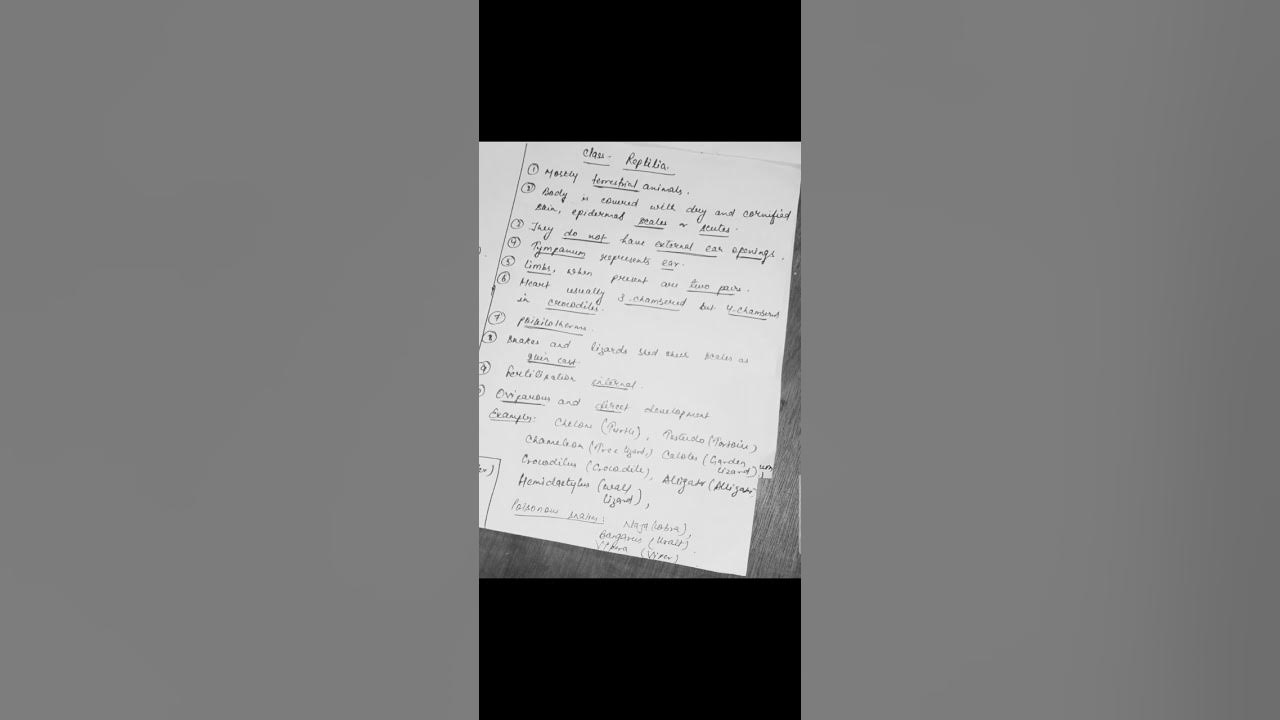 Class - Reptilia.
① Mostly terrestrial animals.
② Body is covered with dry and cornified
skin, epidermal scales or scutes.
③ They do not have external ear openings.
④ Tympanum represents ear.
⑤ Limbs, when present are two pairs.
⑥ Heart usually 3 chambered but 4 chambered
in crocodiles.
⑦ Poikilotherms.
⑧ Snakes and lizards shed their scales as
skin cast.
⑨ Fertilization internal.
Oviparous and direct development
Examples: Chelone (Turtle), Testudo (Tortoise)
Chameleon (Tree lizard) Calotes (Garden
lizard),
Crocodilus (Crocodile), Alligator (Alligator
Hemidactylus (wall
lizard),
Poisonous snakes: Naja (Cobra),
Bangarus (Krait).
Vipera (Viper)